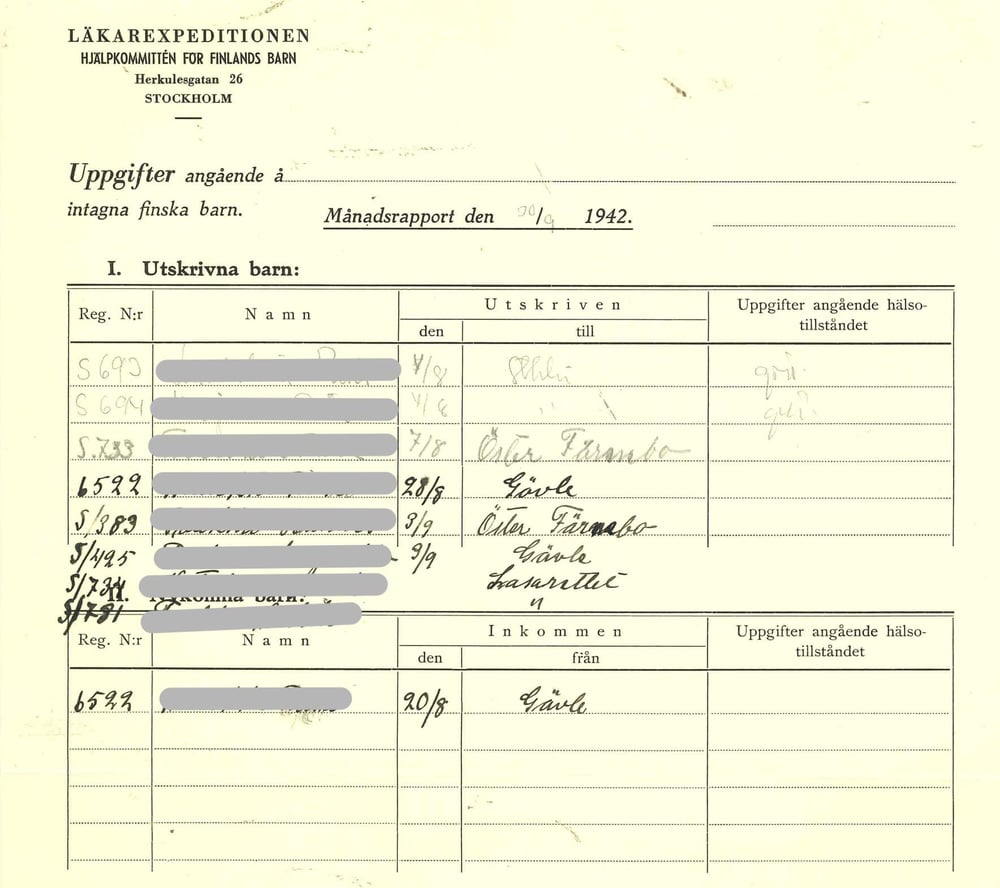 LÄKAREXPEDITIONEN
HJÄLPKOMMITTÉN FÖR FINLANDS BARN
Herkulesgatan 26
STOCKHOLM
Uppgifter angående å
intagna finska barn. Månadsrapport den /9 1942.
I. Utskrivna barn:
Reg. N:r Namn Utskriven Uppgifter angående hälso-
den till tillståndet
S 693 4/8
S 694 4/8 "
S.733 7/8 Öster Färnebo
6522 28/8 Gävle
S/383 3/9 Öster Färnebo
S/495 9/9 Gävle
S/734 Lasarettet
II. Nykomna barn:
S/781 "
Reg. N:r Namn Inkommen Uppgifter angående hälso-
den från tillståndet
6522 20/8 Gävle